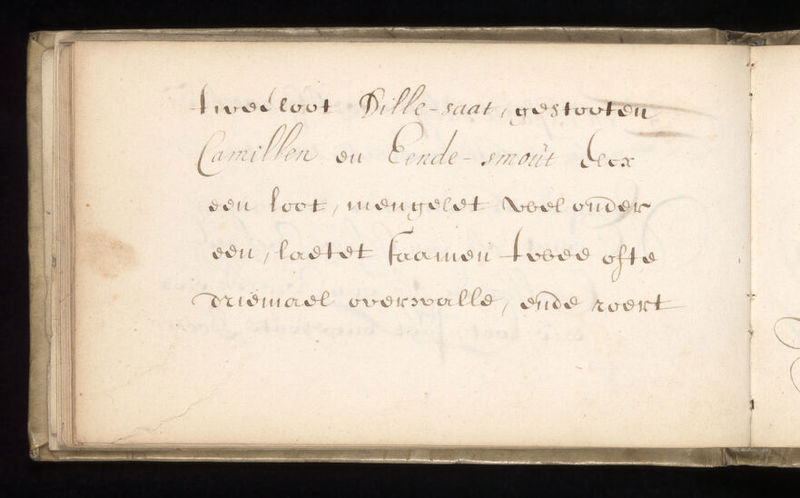 tweeloot Dille-saat, gestooten
Camillen en Eende-smout elcx
een loot, mengelet wel onder
een, laetet saamen twee ofte
driemael overwalle, ende roert